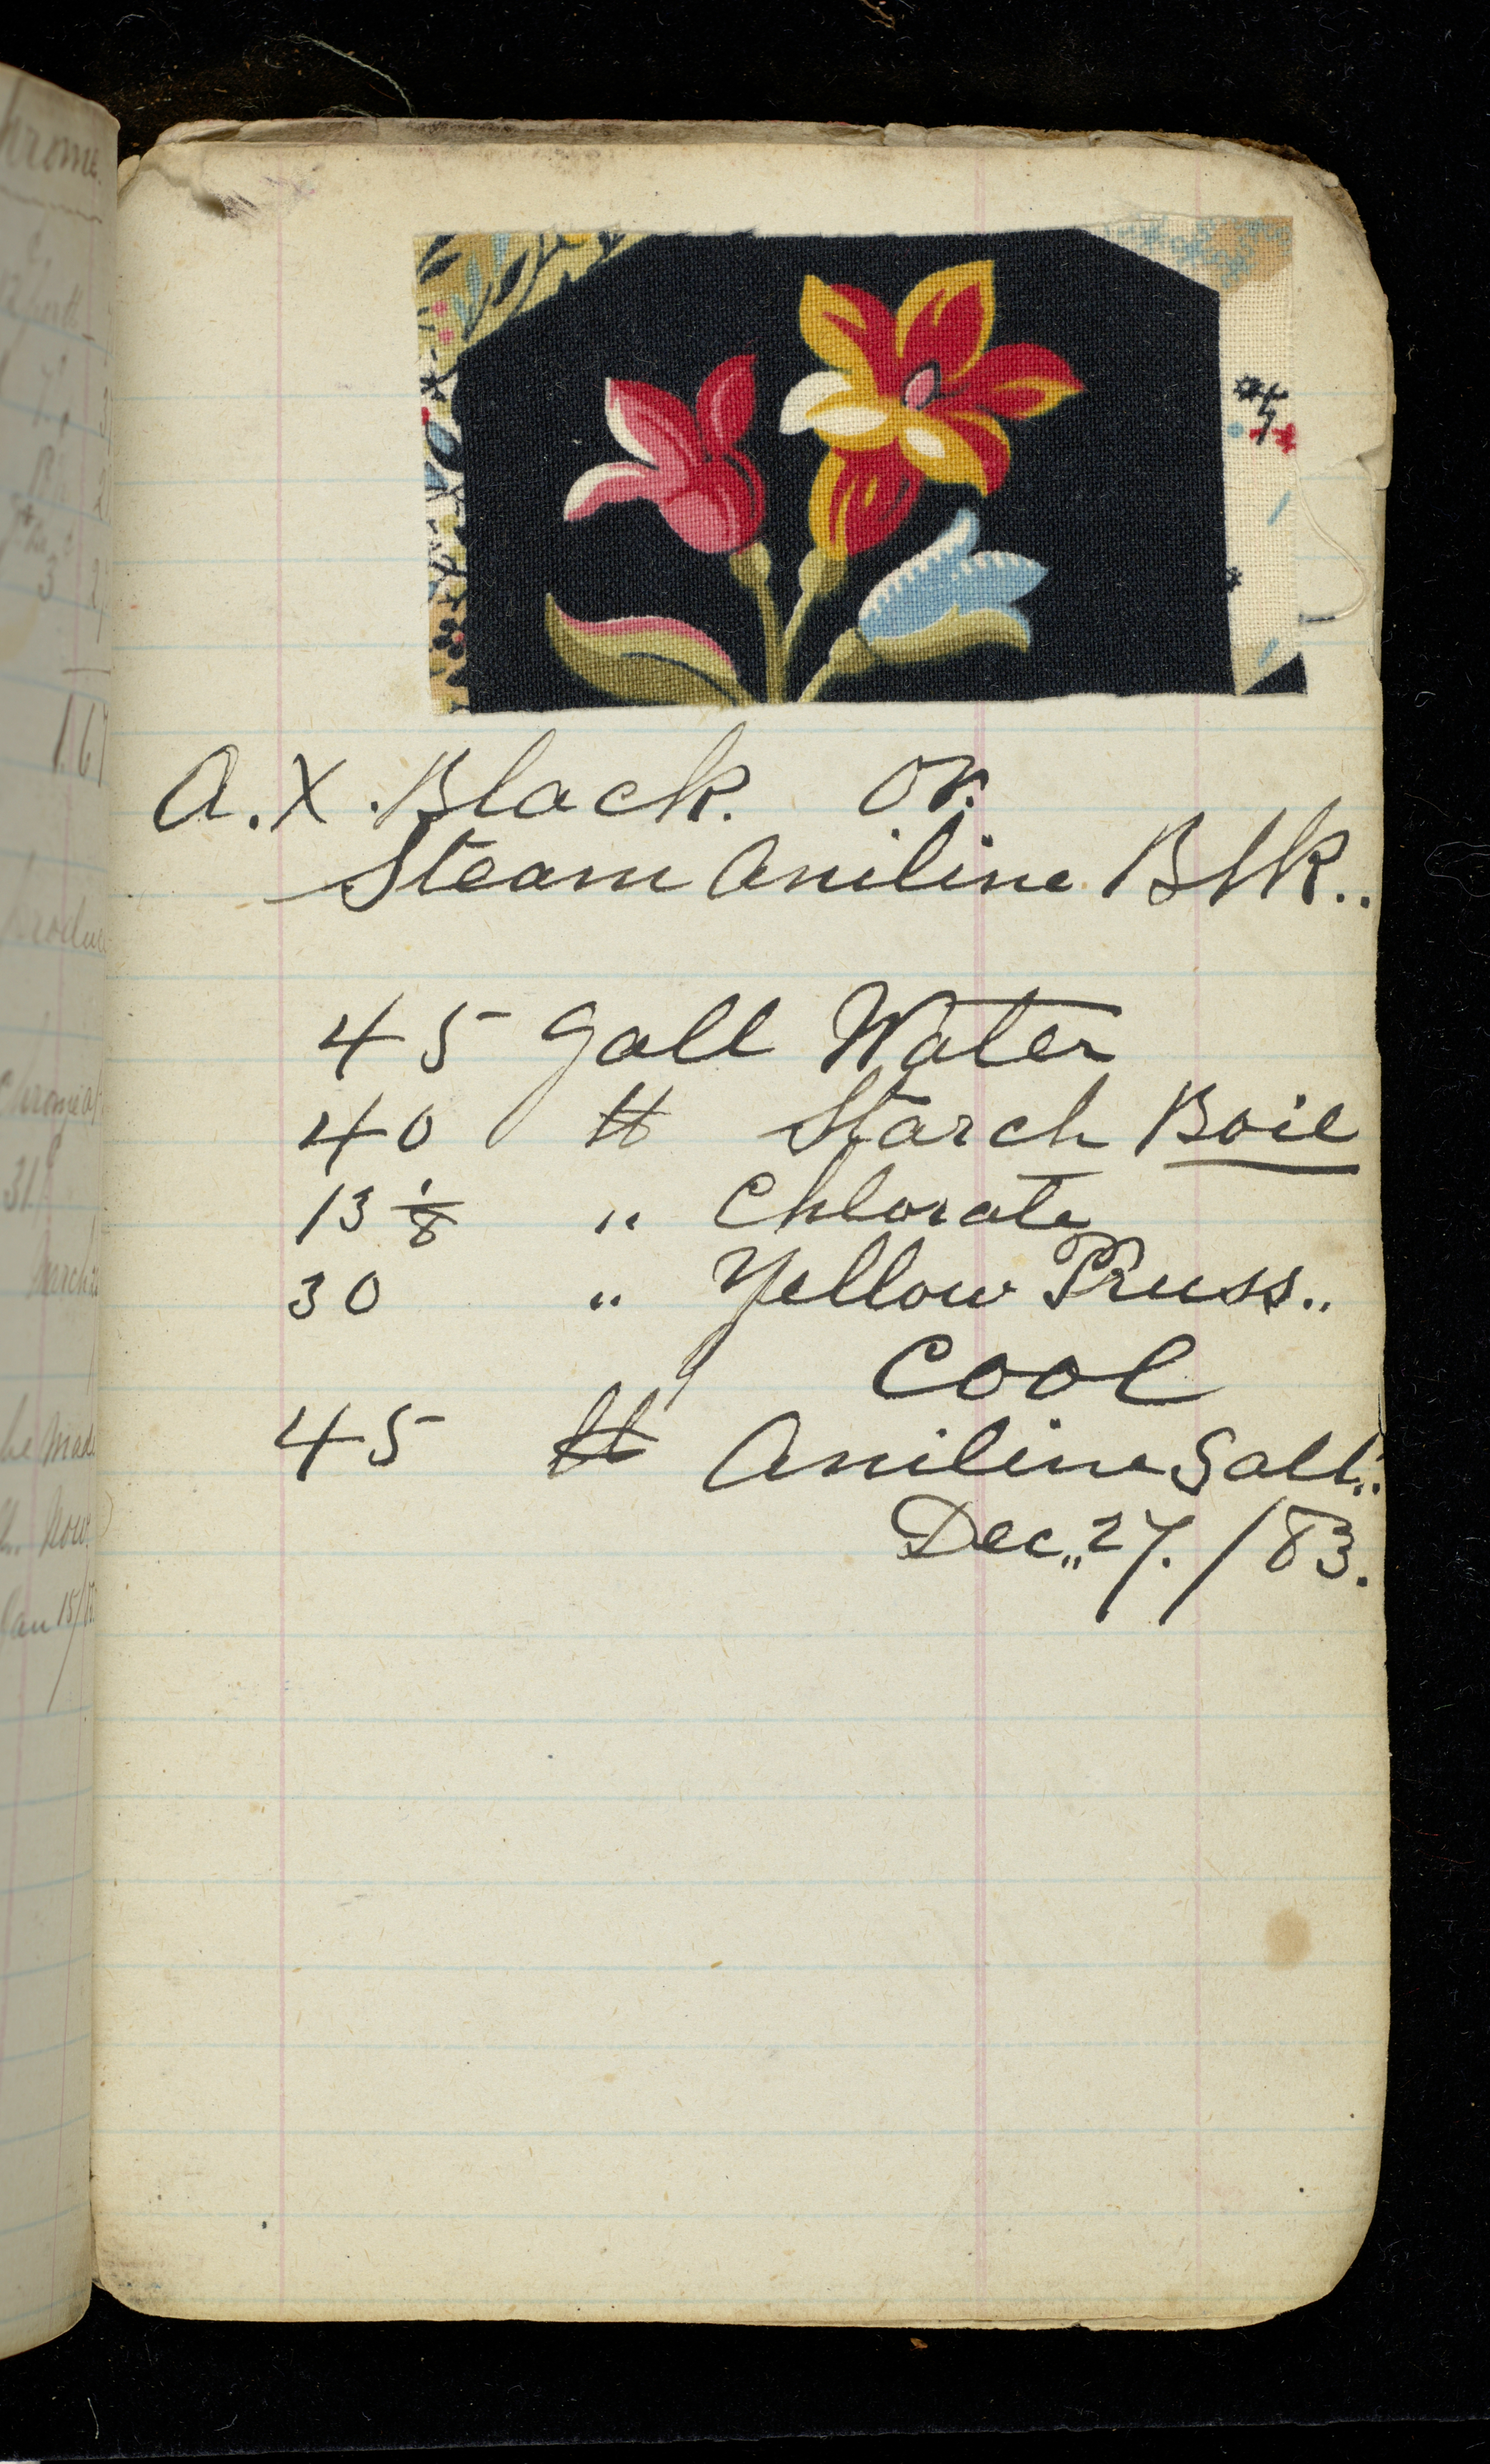 A.X. Black. or.
Steam Aniline Blk..
45 Gall Water
40 lb Starch Boil
13 1/8 " Chlorate
30 " Yellow Pruss..
Cool
45 lb Aniline Salt..
Dec,, 27. / 83.
hrome.
1.67
31.
be Made
Jan 15/